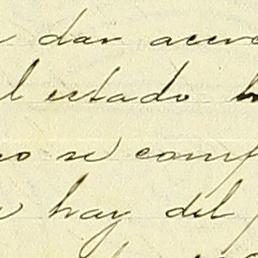 dar acerc
l estado
no se comp
hay del